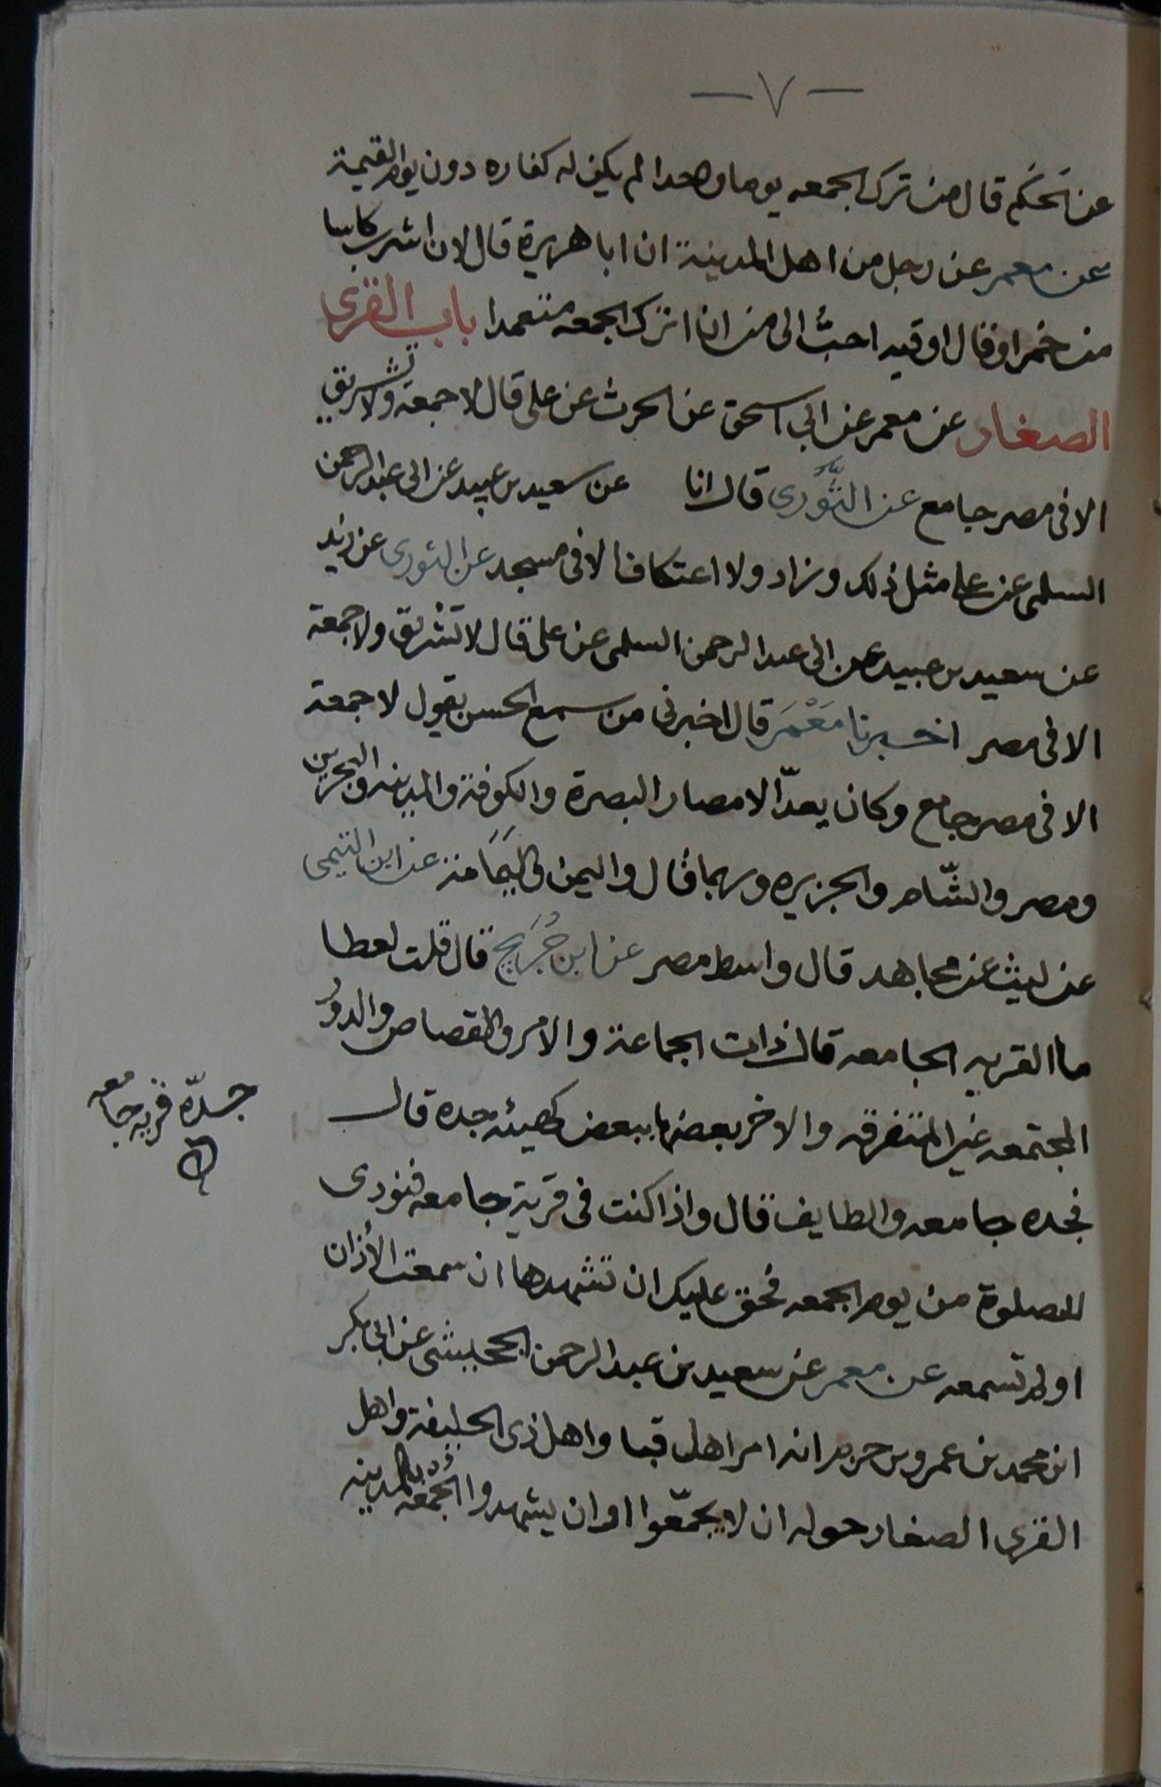 — ٧ —
عن الحكم قال من ترك الجمعه يوما واحدا لم يكن له كفاره دون يوم القيمة
عن معمر عن رجل من اهل المدينة ان ابا هريرة قال لان اشرب كاسا
من خمر او قال اوقيه احبّ الى من ان اترك الجمعه متعمدا باب القرى
الصغار عن معمر عن ابي اسحق عن الحرث عن على قال لا جمعة ولا تشريق
الا فى مصر جامع عن الثَّوْرى قال انا عن سعيد بن عبيد عن ابى عبد الرحمن
السلمى عن على مثل ذلك وزاد ولا اعتكاف الا فى مسجد عن الثورى عن زبد
عن سعيد بن عبيد عن ابى عبد الرحمن السلمى عن على قال لا تشريق ولا جمعة
الا فى مصر اخبرنا مَعْمَر قال اخبرنى من سمع الحسن يقول لا جمعة
الا فى مصر جامع وكان يعدّ الامصار البصرة والكوفة والمدينه والبحرين
ومصر والشّام والجزيره وربما قال واليمن واليَمَامة عن ابن التيمى
عن ليث عن مجاهد قال واسط مصر عن ابن جُرَيج قال قلت لعطا
ما القريه الجامعه قال ذات الجماعة والامر والقصاص والدوُر
المجتمعه غير المتفرقه والاخر بعضها ببعض كهيئه جده قال
فجده جامعه والطايف قال واذا كنت فى قرية جامعه فنودى
للصلوة من يوم الجمعه فحق عليك ان تشهدها ان سمعت الأذان
او لم تسمعه عن معمر عن سعيد بن عبد الرحمن الجحبشى عن ابى بكر
ابن محمد بن عمرو بن حزم انه امر اهل قبا واهل ذى الحليفة واهل
القرى الصغار حوله ان لا يجمّعوا وان يشهدوا الجُمُعَه بالمدينه
جدّة قريه جامعه